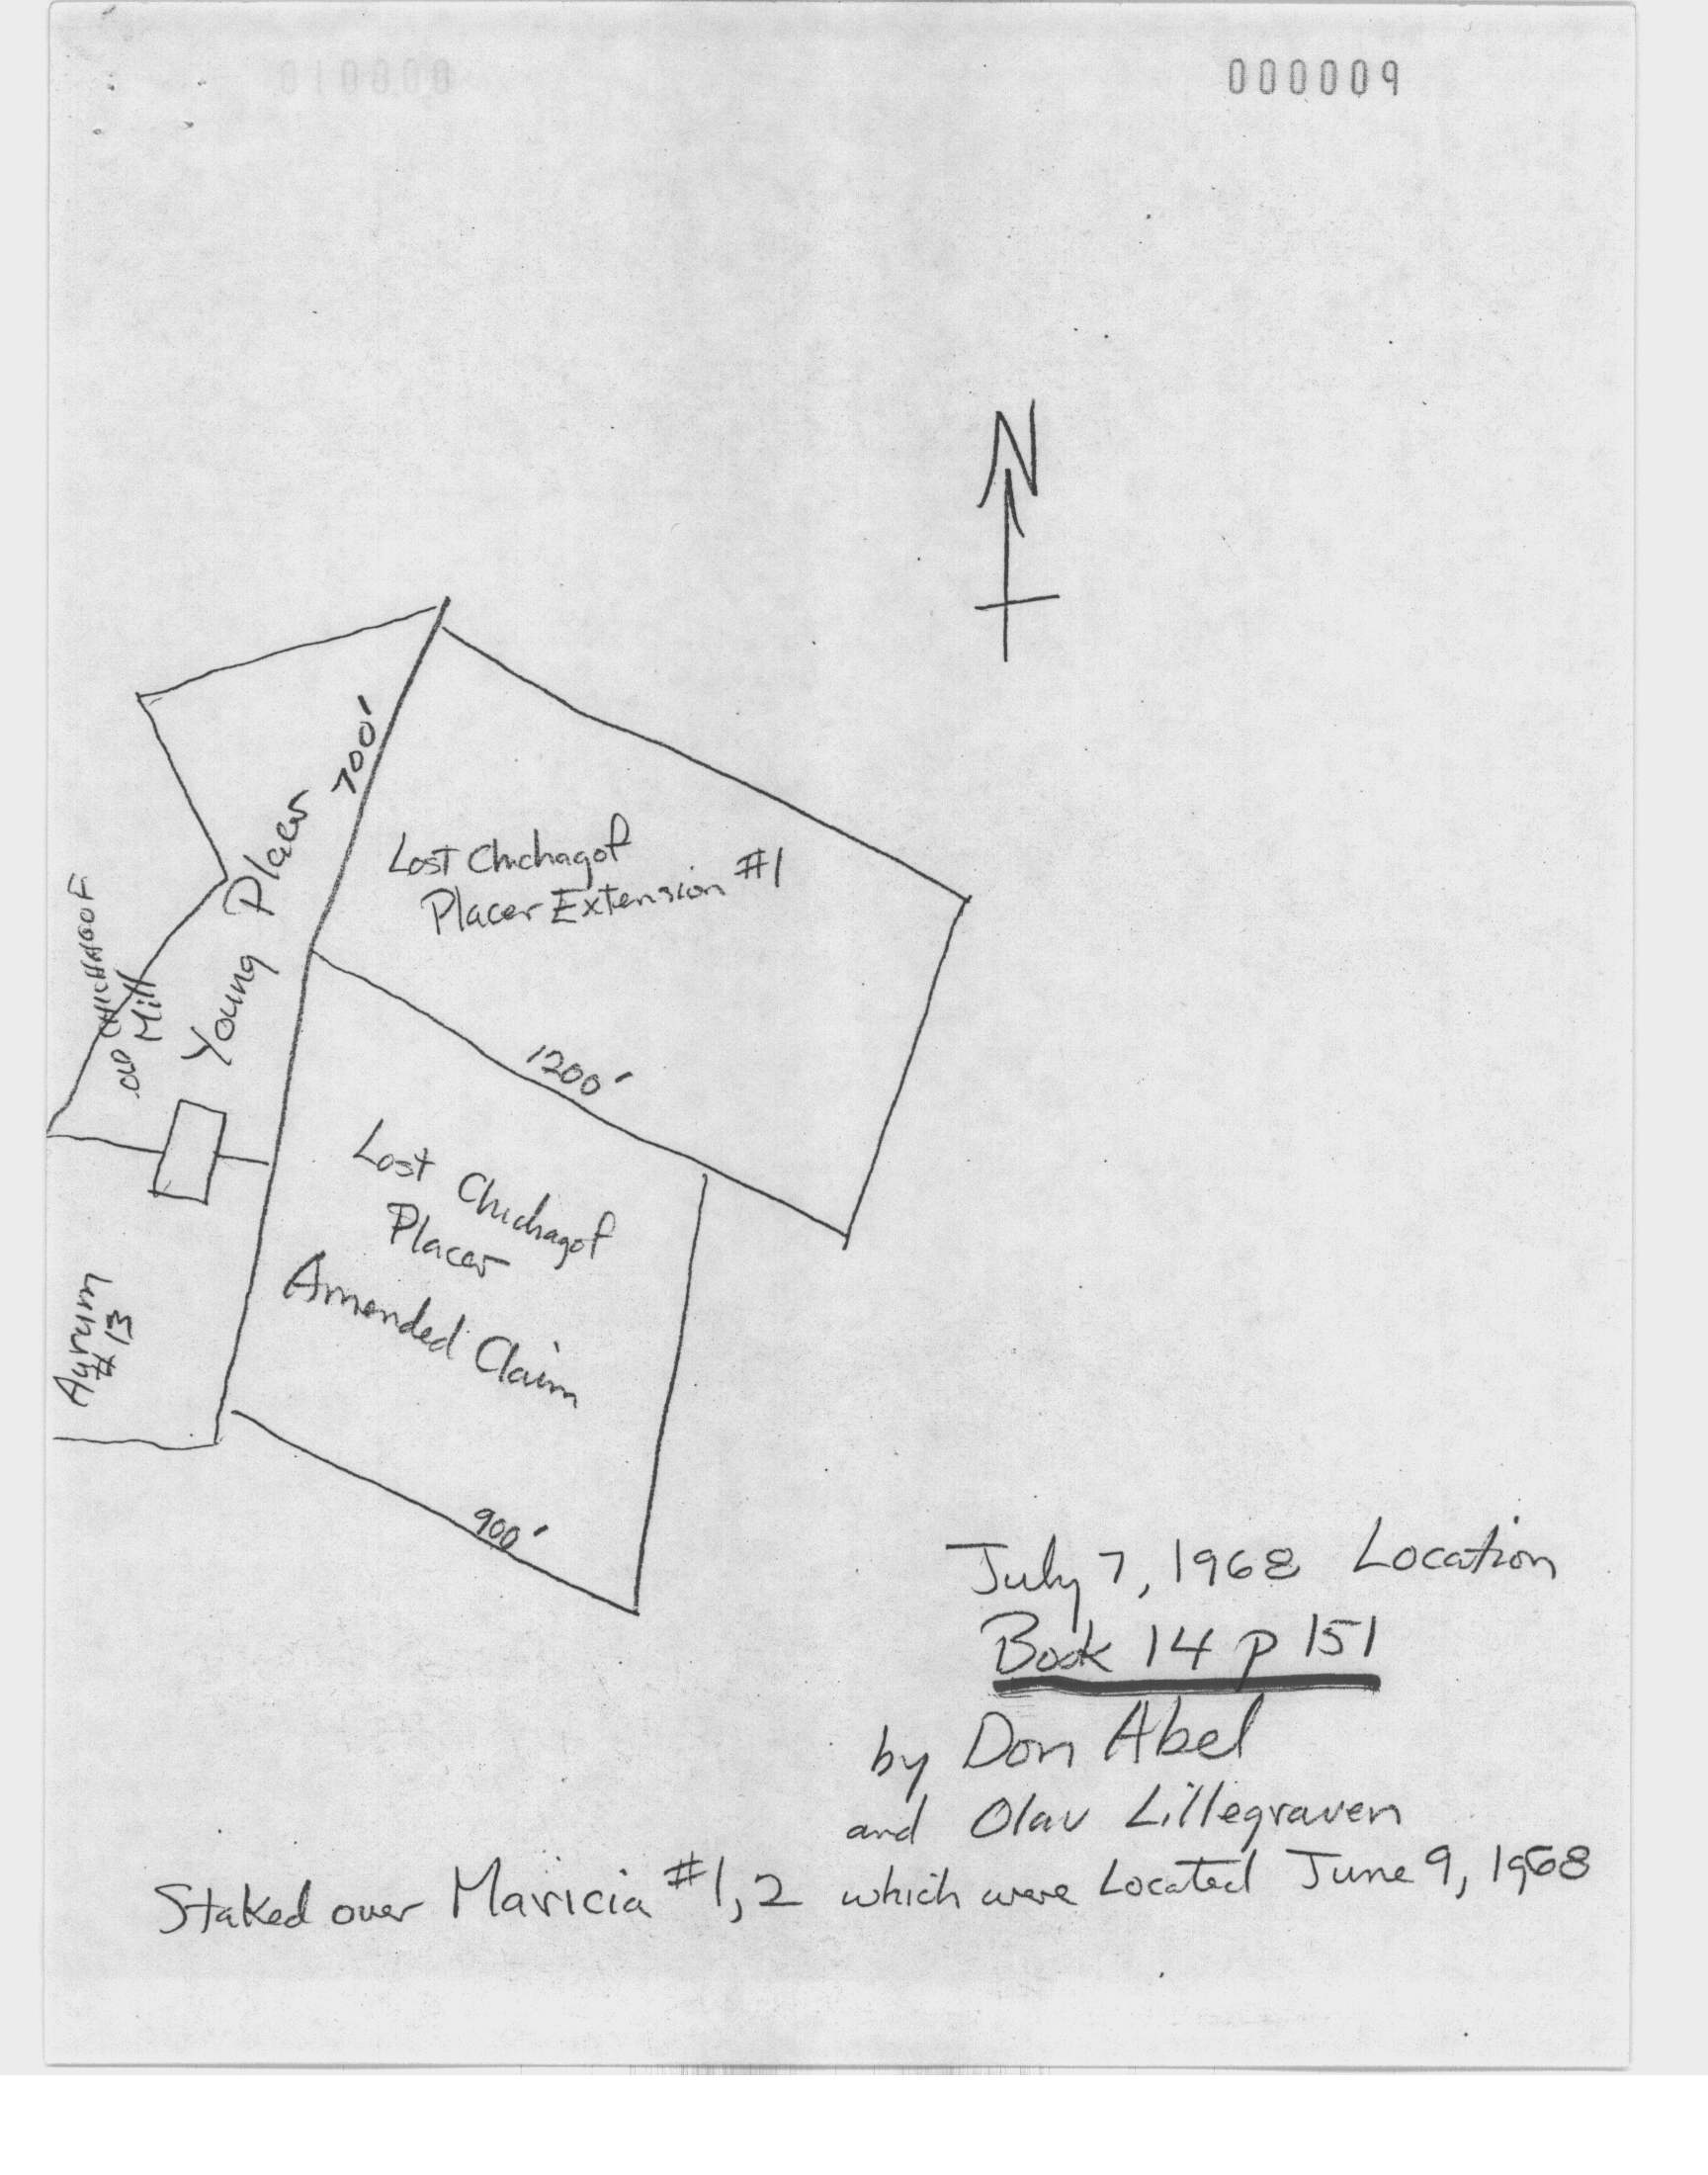 000009
N
700'
Lost Chichagof
Placer Extension #1
Young Placer
OLD CHICHAGOF
Mill
1200'
Lost Chichagof
Placer
Amended Claim
Aurum
#13
900'
July 7, 1968 Location
Book 14 p 151
by Don Abel
and Olav Lillegraven
Staked over Maricia #1, 2 which were Located June 9, 1968